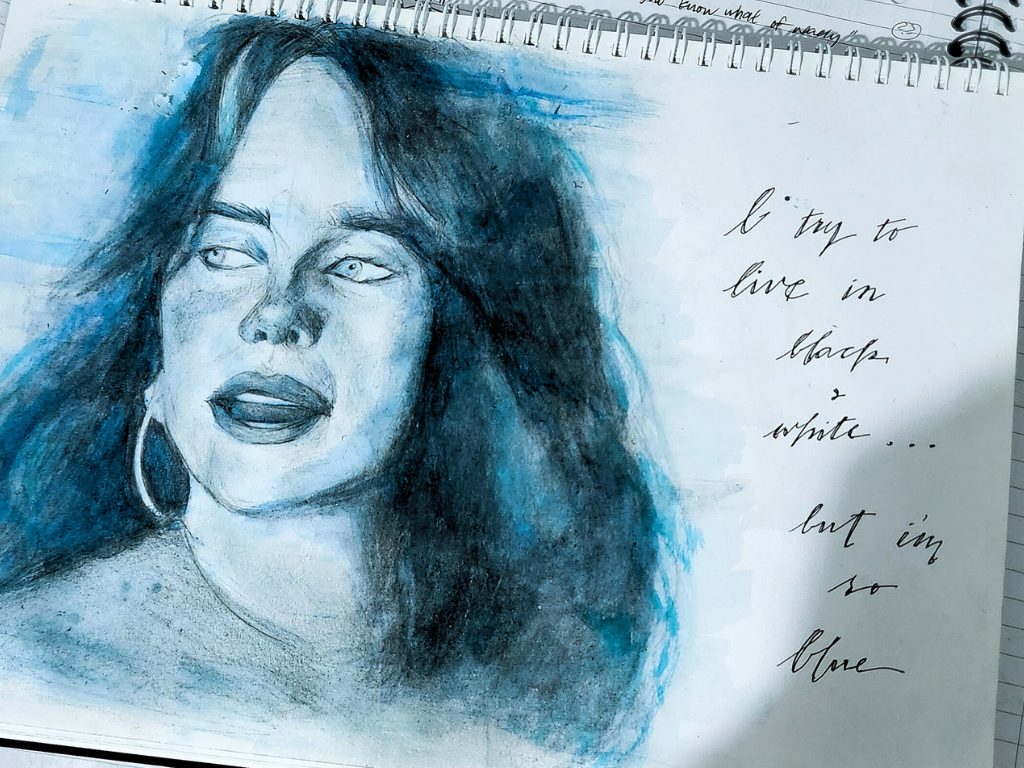 you know what of
I try to
live in
black
&
white...
but i'm
so
blue